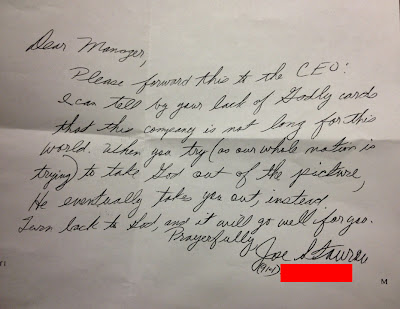 Dear Manager,
Please forward this to the CEO:
I can tell by your lack of Godly cards
that this company is not long for this
world. When you try (as our whole nation is
trying) to take God out of the picture,
He eventually takes you out, instead.
Turn back to God, and it will go well for you.
Prayerfully,
Joe
M